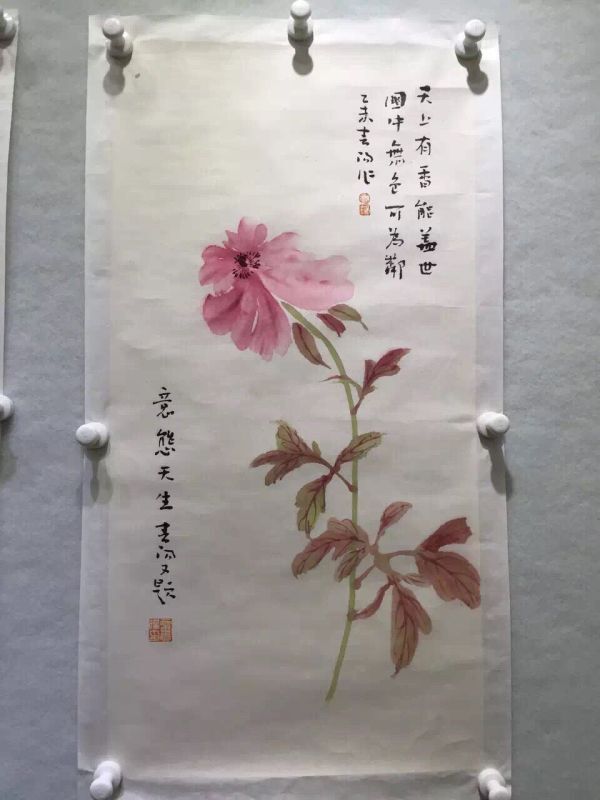 天上有香能盖世
國中無色可為鄰
乙未春 作
意態天生 春 又題